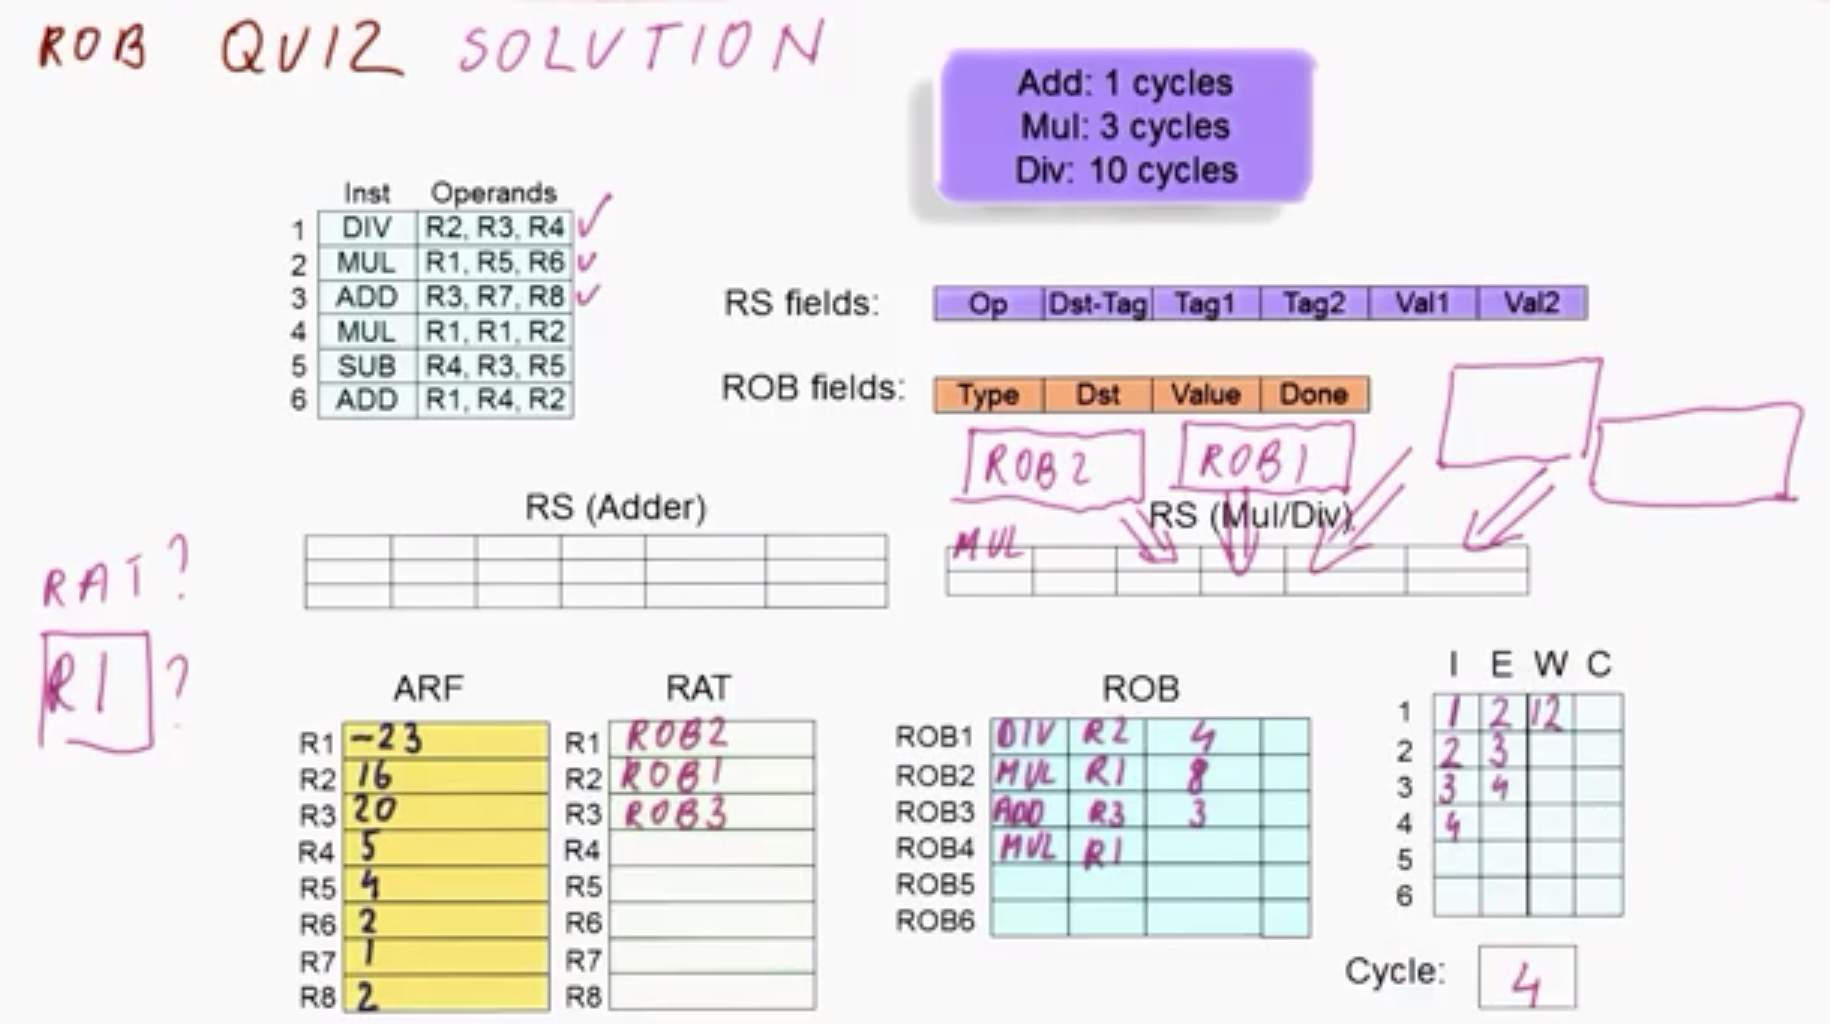 ROB QUIZ SOLUTION
Add: 1 cycles
Mul: 3 cycles
Div: 10 cycles
Inst Operands
1 DIV R2, R3, R4 ✓
2 MUL R1, R5, R6 ✓
3 ADD R3, R7, R8 ✓
4 MUL R1, R1, R2
5 SUB R4, R3, R5
6 ADD R1, R4, R2
RS fields: Op Dst-Tag Tag1 Tag2 Val1 Val2
ROB fields: Type Dst Value Done
ROB2 ROB1
RS (Adder)
RS (Mul/Div)
MUL
RAT?
R1?
ARF
R1 -23
R2 16
R3 20
R4 5
R5 4
R6 2
R7 1
R8 2
RAT
R1 ROB2
R2 ROB1
R3 ROB3
R4
R5
R6
R7
R8
ROB
ROB1 DIV R2 4
ROB2 MUL R1 8
ROB3 ADD R3 3
ROB4 MUL R1
ROB5
ROB6
I E W C
1 1 2 12
2 2 3
3 3 4
4 4
5
6
Cycle: 4